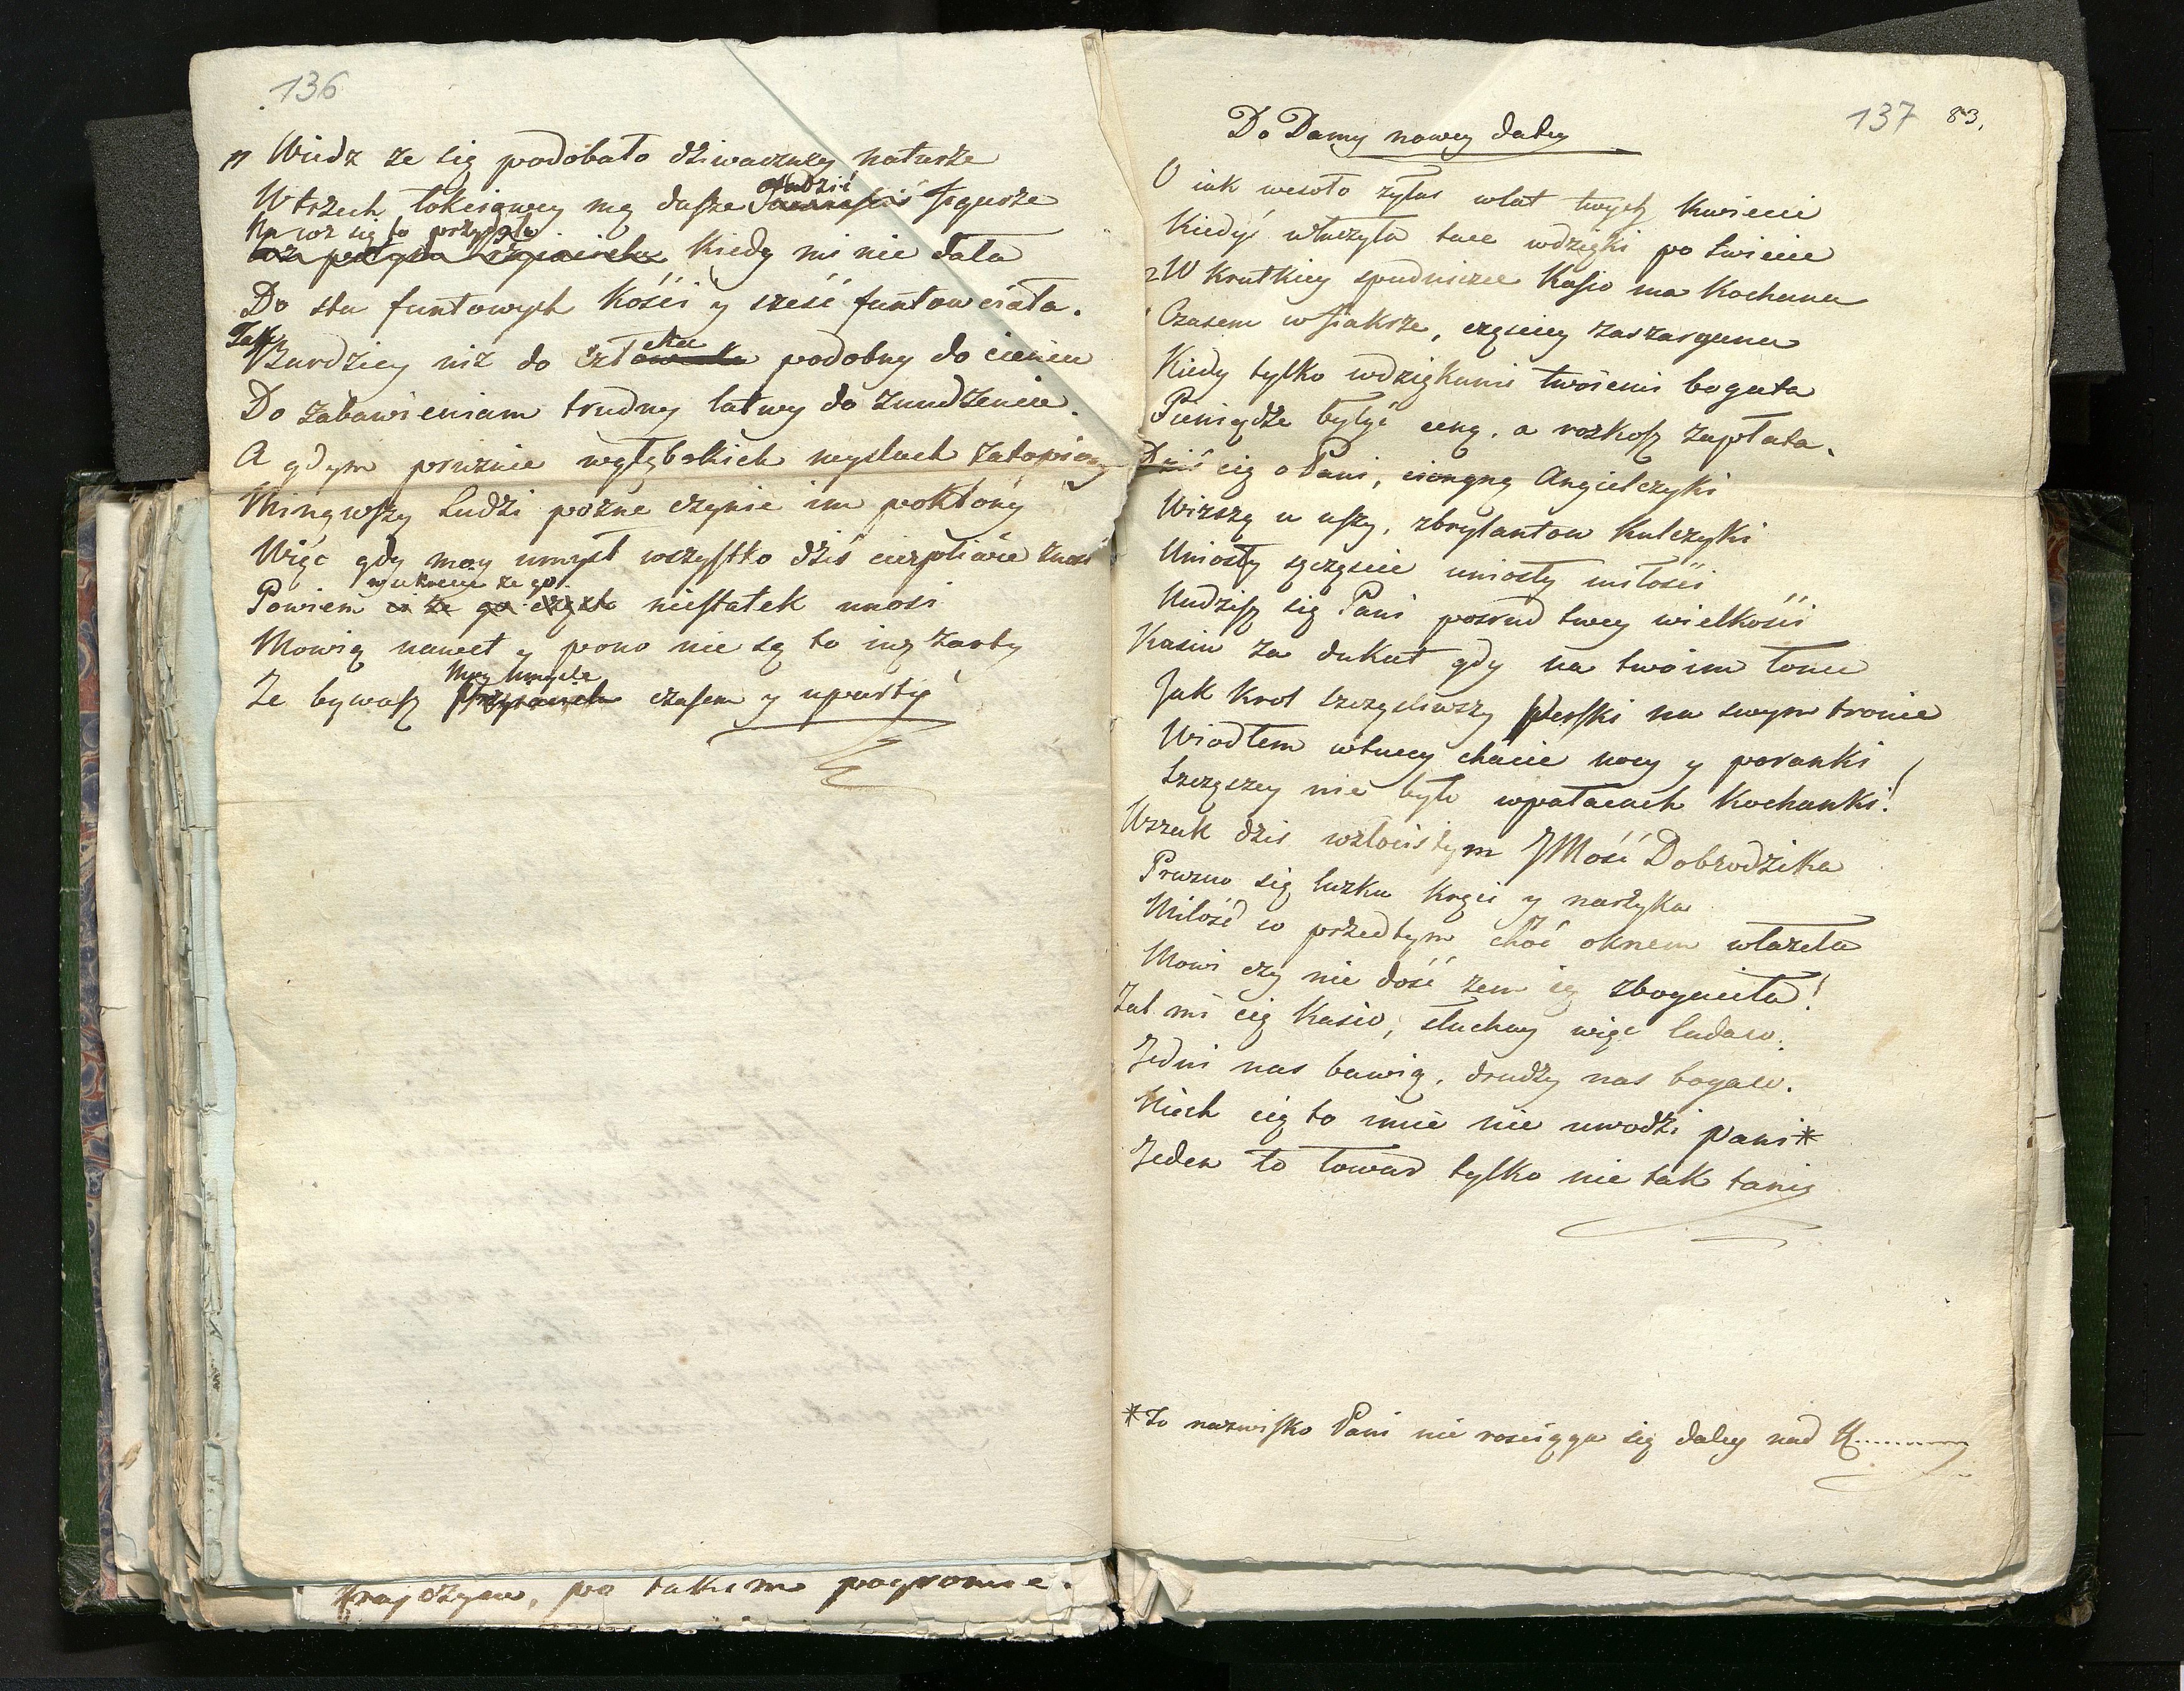 136
Widz ze się podobało dziwaczney naturze
W trzech łokciowey mą dusze osadzić figurze
Na coz się to przydało Kiedy mi nie dała
Do stu funtowych kości y sześć funtow ciała.
Tak Bardziey niz do człeka podobny do cienia
Do zabawieniam trudny łatwy do znudzenia.
A gdym proznie wgłębokich myslach zatopiony
Minąwszy Ludzi pozne czynie im pokłony
Więc gdy moy umysł wszystko dziś cierpliwie znosi
Powiem mu że go niestatek unosi
Mowią nawet y pono nie są to iuz żarty
Ze bywasz Moy Umyśle czasem y uparty
Krayczym, po takim pogromie.
137 83,
Do Damy nowey daty
O iak wesoło zyłas wlat twych kwiecie
Kiedyś włuczyła twe wdzięki po świecie
W krutkiey spudnicze Kasio ma kochana
Czasem w fiakrze, częściey zaszargana
Kiedy tylko wdziękami twoiemi bogata
Pieniądze byłyć ceną, a rozkosz zapłata.
Dziś cię o Pani, ciongną Angielczyki
Wiszą u uszy, zbrylantow kulczyki
Uniosły szczęście uniosły miłości
Nudzisz się Pani posrud twey wielkości
Kasiu za dukat gdy na twoim łonie
Jak krol szczęsliwszy perski na swym tronie
Wiodłem wtwey chacie nocy y poranki
Szczęszey nie było wpałacach kochanki!
Wszak dzis wzłocistym JMość Dobrodzika
Prozno się łuzku kręci y narzyka
Miłość co przedtym choć oknem właziła
Mowi czy nie dość zem ią zbogaciła!
Zal mi cię Kasio, słuchay więc ladaco.
Jedni nas bawią, drudzy nas bogacą.
Niech cię to imie nie uwodzi pani*
Jeden to towar tylko nie tak tani
*To nazwisko Pani nie rosciąga się daley nad K..........